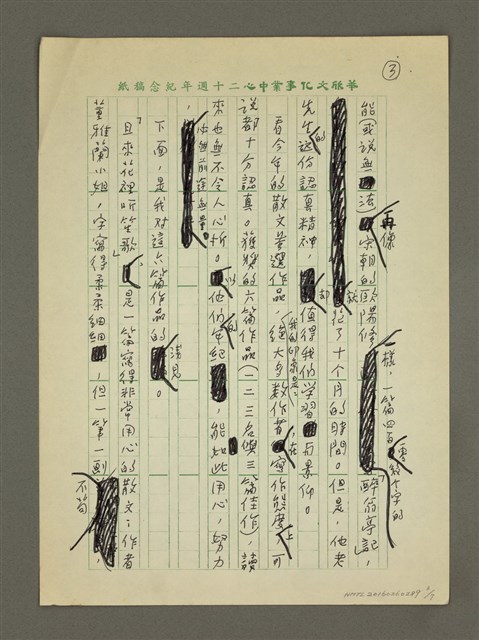 華欣文化事業中心二十週年紀念稿紙
③
能(或說無法)再像宋朝的歐陽修一樣,一篇四百零幾個字的「醉翁亭記」,
就花了十個月的時間。但是,他老
先生的這份認真精神,却值得我們學習與景仰。
看今年的散文並選作品,我的印象是:絕大多數作者,在寫作態度上,可
說都十分認真。獲獎的六篇作品(一二三名與三篇佳作),讀
來也無不令人心折。以他們的年紀,能如此用心,努力,
前途無量。
下面,是我对這六篇作品的淺見。
「且來花裡听笙歌」是一篇寫得非常用心的散文;作者
黃雅蘭小姐,字寫得柔柔細細,但一筆一劃不苟,
NMTL20160060289